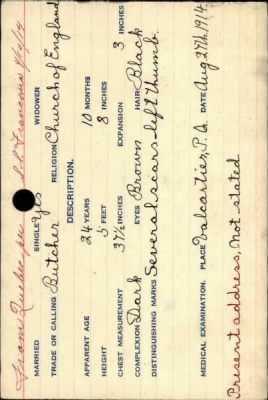 From Quebec per S.S. Franconia 4/10/14
MARRIED SINGLE Yes WIDOWER
TRADE OR CALLING Butcher RELIGION Church of England
DESCRIPTION.
APPARENT AGE 24 YEARS 10 MONTHS
HEIGHT 5 FEET 8 INCHES
CHEST MEASUREMENT 37½ INCHES EXPANSION 3 INCHES
COMPLEXION Dark EYES Brown HAIR Black
DISTINGUISHING MARKS Several scars-left thumb.
MEDICAL EXAMINATION. PLACE Valcartier, P.Q. DATE Aug 27th, 1914.
Present address, Not stated